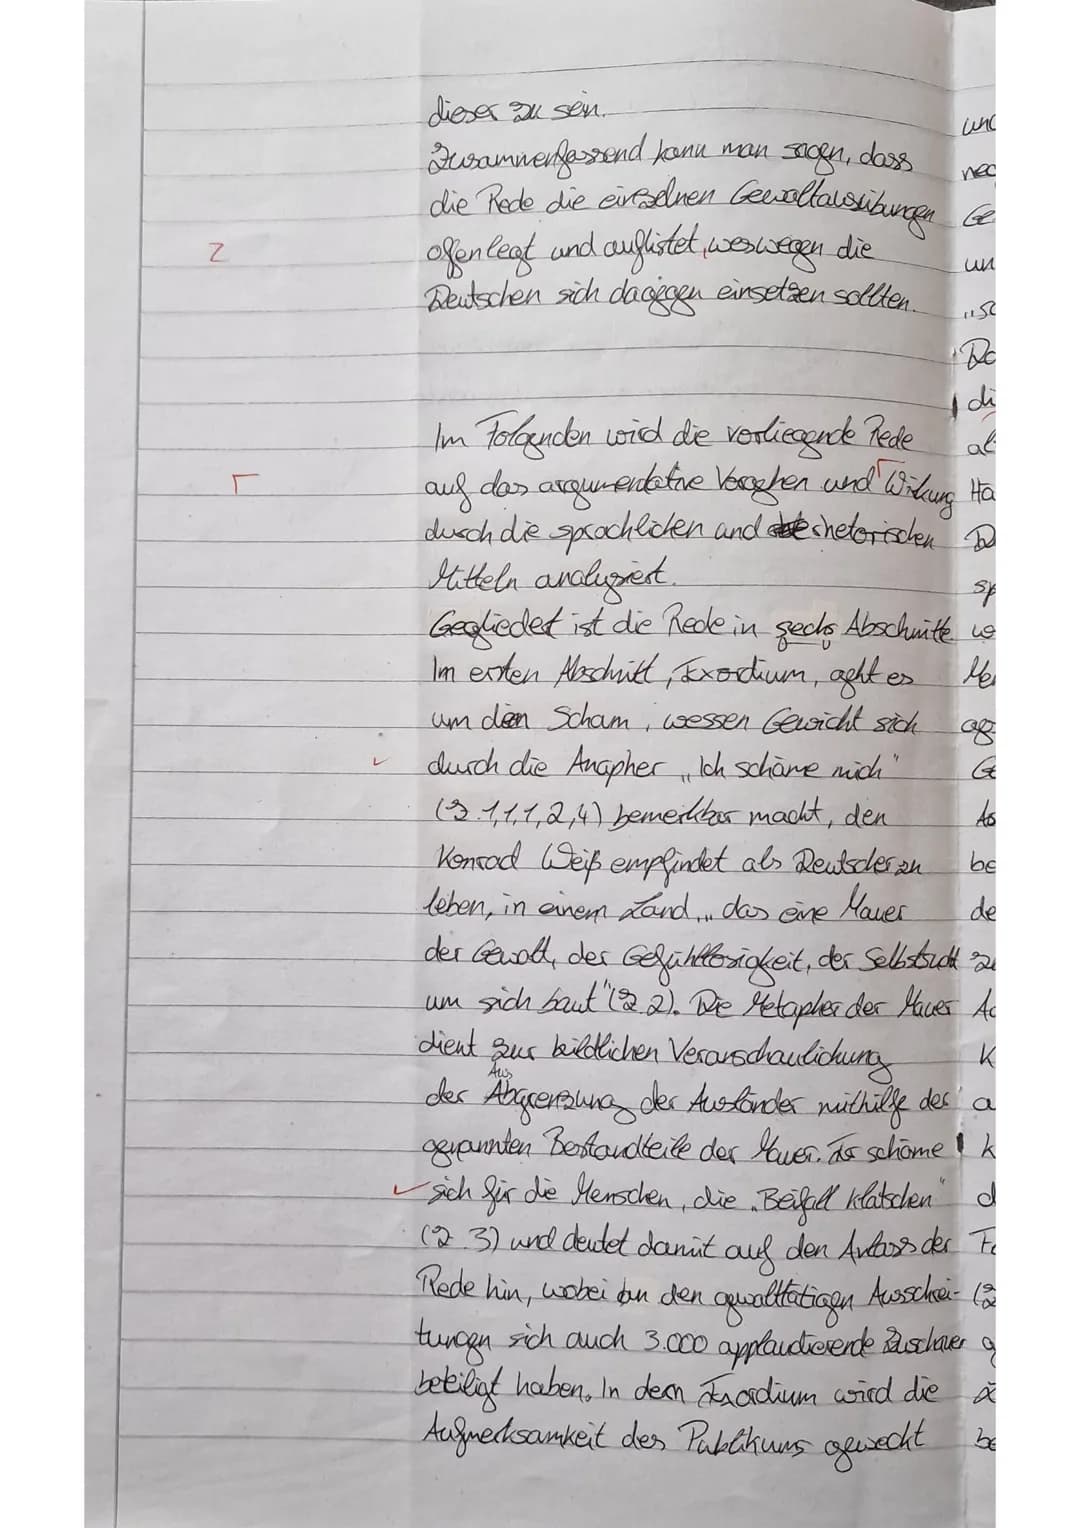 dieser zu sein.
Zusammenfassend kann man sagen, dass
die Rede die einzelnen Gewaltausübungen
Z
offenlegt und auflistet, weswegen die
Deutschen sich dagegen einsetzen sollten.
Im Folgenden wird die vorliegende Rede
auf das argumentative Vorgehen und Γ Wirkung
Γ
durch die sprachlichen und rhetorischen
Mitteln analysiert.
Gegliedert ist die Rede in sechs Abschnitte
Im ersten Abschnitt, Exordium, geht es
um den Scham, wessen Gewicht sich
durch die Anapher „Ich schäme mich"
(Z.1,1,1,2,4) bemerkbar macht, den
Konrad Weiß empfindet als Deutscher zu
leben, in einem Land „das eine Mauer
der Gewalt, der Gefühllosigkeit, der Selbstsucht
um sich baut"(Z.2). Die Metapher der Mauer
dient zur bildlichen Veranschaulichung
Aus
der Abgrenzung der Ausländer mithilfe der
genannten Bestandteile der Mauer. Er schäme
sich für die Menschen, die „Beifall klatschen"
(Z.3) und deutet damit auf den Anlass der
Rede hin, wobei an den gewalttätigen Ausschrei-
tungen sich auch 3.000 applaudierende Zuschauer
beteiligt haben. In dem Exordium wird die
Aufmerksamkeit des Publikums geweckt